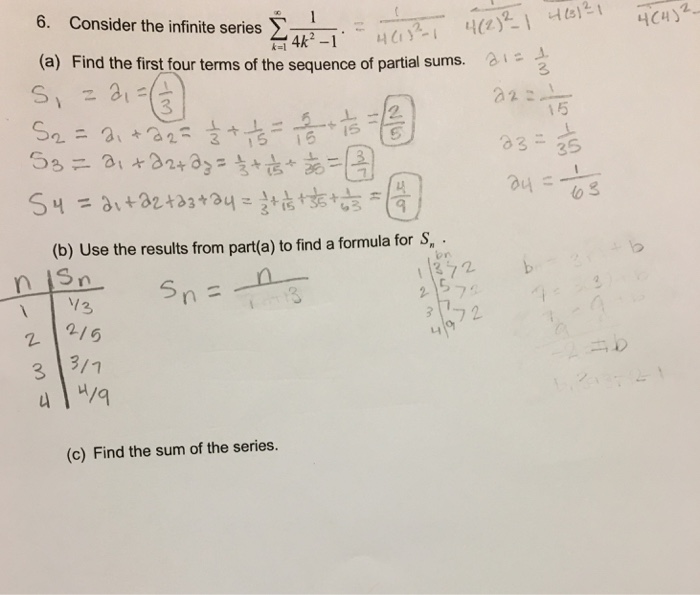 6. Consider the infinite series ∞ Σ k=1 1/(4k² – 1). = 1/(4(1)²-1) 1/(4(2)²-1) 4(3)²-1 4(4)²-
(a) Find the first four terms of the sequence of partial sums. a1 = 1/3
S1 = a1 = 1/3 a2 = 1/15
S2 = a1 + a2 = 1/3 + 1/15 = 5/15 + 1/15 = 2/5 a3 = 1/35
S3 = a1 + a2 + a3 = 1/3 + 1/15 + 1/35 = 3/7 a4 = 1/63
S4 = a1 + a2 + a3 + a4 = 1/3 + 1/15 + 1/35 + 1/63 = 4/9
(b) Use the results from part(a) to find a formula for Sn.
n | Sn Sn = n bn
1 1/3 1 | 3 > 2
2 2/5 2 | 5 > 2
3 3/7 3 | 7 > 2
4 4/9 4 | 9
(c) Find the sum of the series.